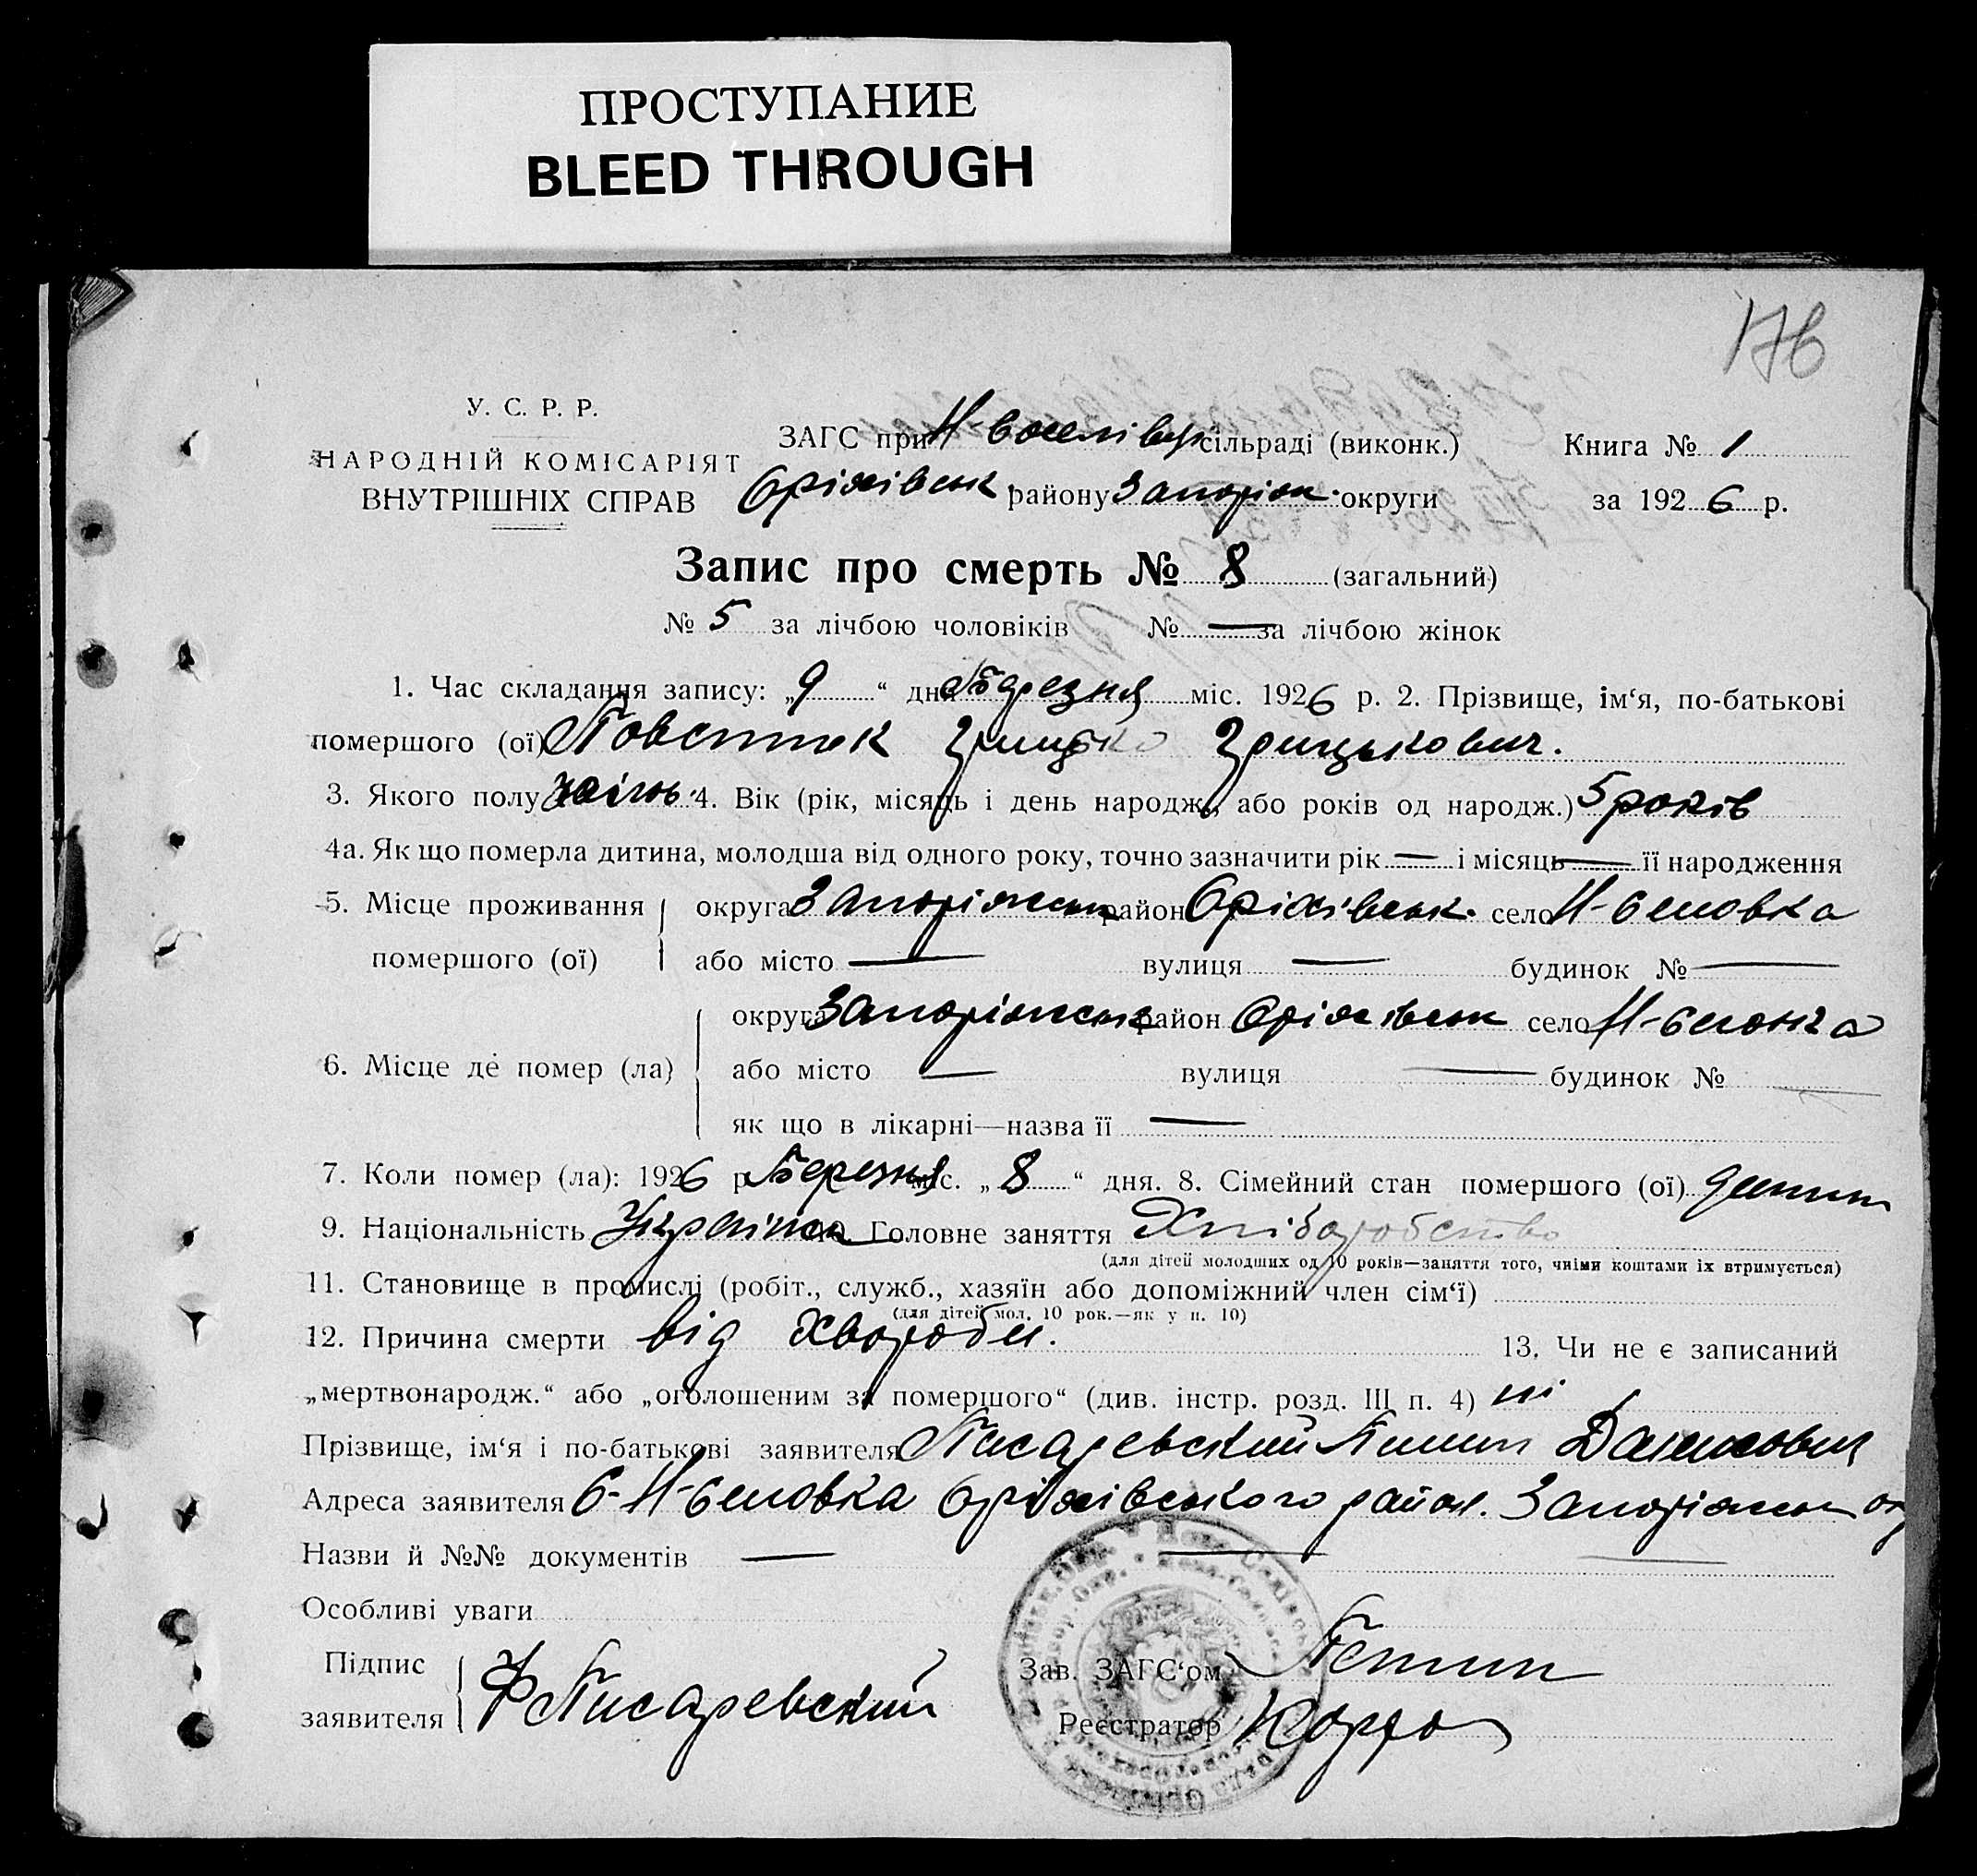 ПРОСТУПАНИЕ
BLEED THROUGH
176
У. С. Р. Р.
НАРОДНІЙ КОМІСАРІЯТ
ВНУТРІШНІХ СПРАВ
ЗАГС при сільраді (виконк.)
Оріхівськ району Запоріж. округи
Книга № 1
за 1926 р.
Запис про смерть № 8 (загальний)
№ 5 за лічбою чоловіків № — за лічбою жінок
1. Час складання запису: „9“ дня Березня міс. 1926 р. 2. Прізвище, ім‘я, по-батькові
помершого (ої) Грицько Грицькович.
3. Якого полу 4. Вік (рік, місяць і день народж., або років од народж.) 5 років
4а. Як що померла дитина, молодша від одного року, точно зазначити рік — і місяць — її народження
5. Місце проживання округа Запоріжськ район Оріхівськ. село
помершого (ої) або місто — вулиця — будинок № —
округа Запоріжськ район Оріхівськ село
6. Місце де помер (ла) або місто — вулиця — будинок № —
як що в лікарні—назва її —
7. Коли помер (ла): 1926 р. Березня міс. „8“ дня. 8. Сімейний стан помершого (ої)
9. Національність 10. Головне заняття Хліборобство
(для дітей молодших од 10 років—заняття того, чиїми коштами їх втримується)
11. Становище в промислі (робіт., служб., хазяїн або допоміжний член сім‘ї)
(для дітей мол. 10 рок.—як у п. 10)
12. Причина смерти від хвороби. 13. Чи не є записаний
„мертвонародж.“ або „оголошеним за помершого“ (див. інстр. розд. III п. 4) ні
Прізвище, ім‘я і по-батькові заявителя Писаревский
Адреса заявителя Оріхівського район. Запоріжськ
Назви й №№ документів — — —
Особливі уваги
Підпис
заявителя Ф Писаревский
Зав. ЗАГС‘ом
Реєстратор